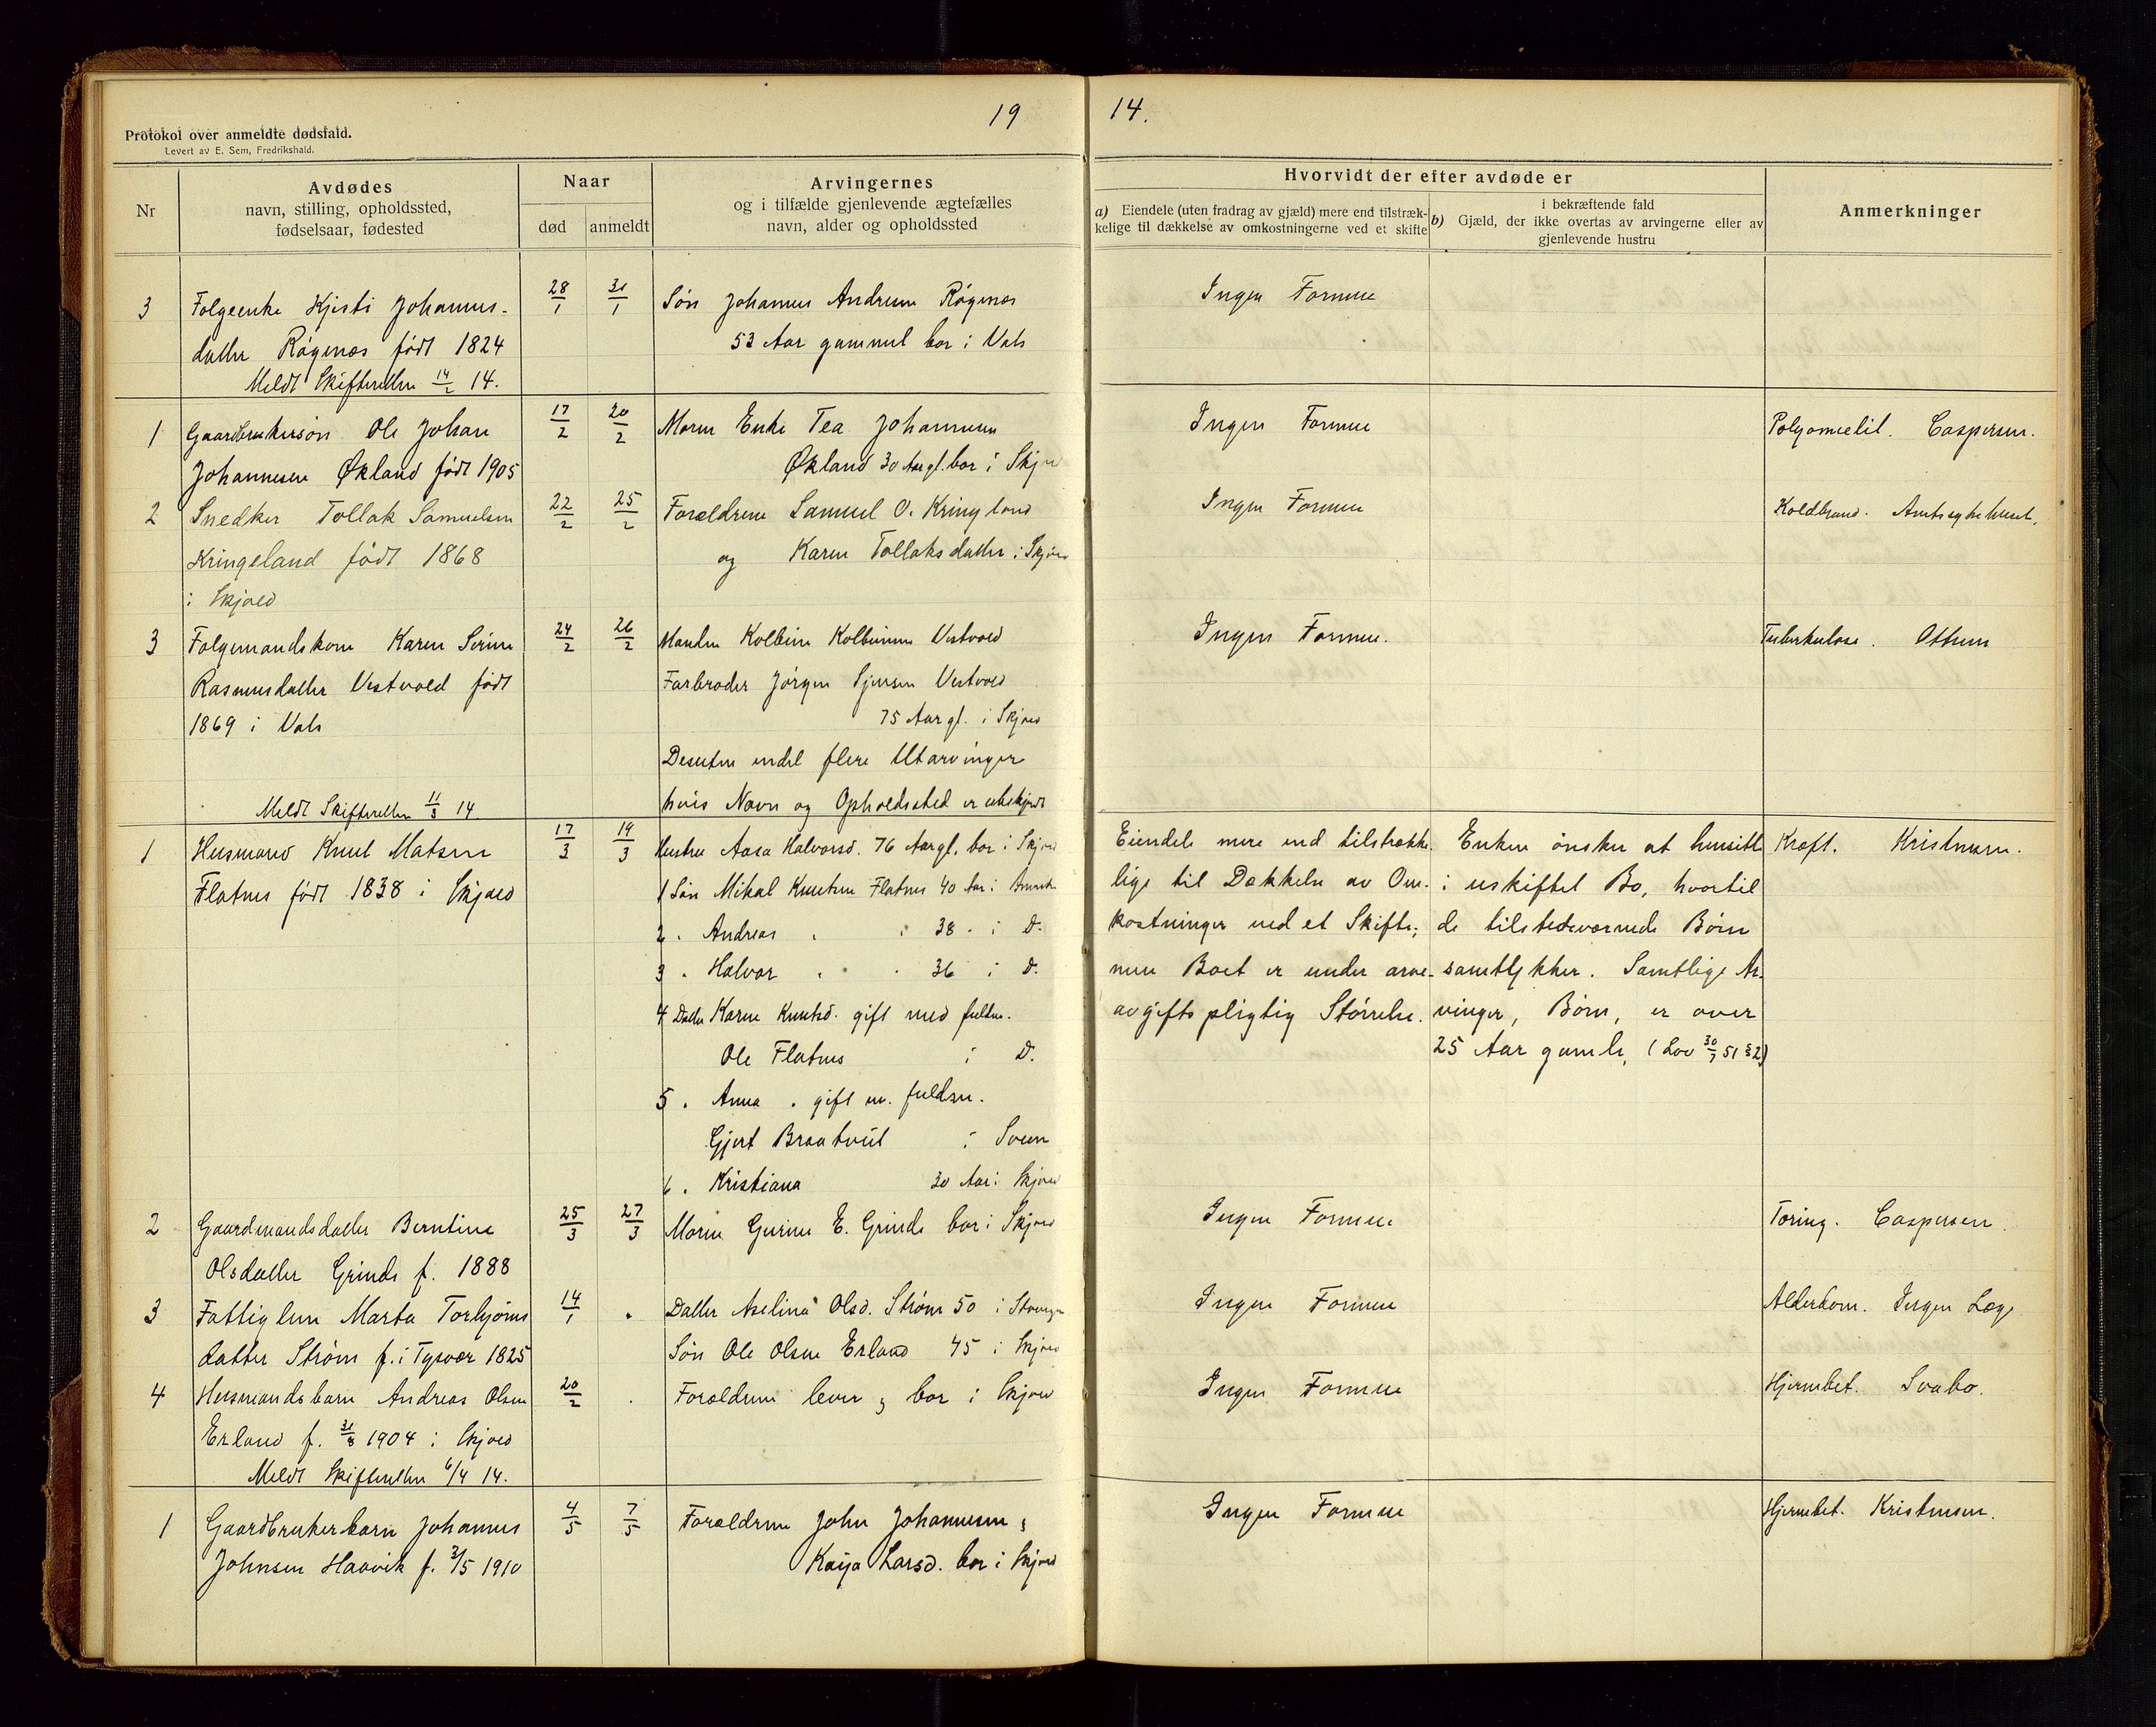 19 14.
Protokol over anmeldte dødsfald.
Levert av E. Sem, Fredrikshald.
Nr
Avdødes
navn, stilling, opholdssted,
fødselsaar, fødested
Naar
død anmeldt
Arvingernes
og i tilfælde gjenlevende ægtefælles
navn, alder og opholdssted
Hvorvidt der efter avdøde er
a) Eiendele (uten fradrag av gjæld) mere end tilstræk-
kelige til dækkelse av omkostningerne ved et skifte
i bekræftende fald
b) Gjæld, der ikke overtas av arvingerne eller av
gjenlevende hustru
Anmerkninger
3 Folgeenke Kjisti Johannes- 28/1 31/1 Søn Johannes Andresen Røgenes Ingen Formue
datter Røgenes født 1824 53 Aar gammel bor i Vats
Meldt Skifteretten 14/2 14.
1 Gaardbrukersøn Ole Johan 17/2 20/2 Moren Enke Tea Johannesen Ingen Formue Polyomielit. Caspersen.
Johannesen Økland født 1905 Økland 30 Aar gl. bor i Skjo
2 Snedker Tollak Samuelsen 22/2 25/2 Forældrene Samuel O. Kringeland Ingen Formue Koldbrand. Amtssykehuset.
Kringeland født 1868 og Karen Tollaksdatter i Skjold
i Skjold
3 Folgemandskone Karen Serine 24/2 26/2 Manden Kolbein Kolbeinsen Vestvold Ingen Formue. Tuberkulose. Ottesen
Rasmusdatter Vestvold født Farbroder Jørgen Sjursen Vestvold
1869 i Vats 75 Aar gl. i Skjold
Desuten endel flere Utarvinger
Meldt Skifteretten 11/3 14 hvis Navn og Opholdssted er ubekjendt
1 Husmand Knut Matsen 17/3 19/3 Hustru Aasa Halvorsd. 76 Aar gl. bor i Skjold Eiendele mere end tilstrække- Enken ønsker at hensitte Kræft. Kristensen.
Flatnes født 1838 i Skjold 1 Søn Mikal Knutsen Flatnes 40 Aar i lige til Dækkelse av Om- i uskiftet Bo, hvortil
2 " Andreas " " 38 " i D. kostninger ved et Skifte; de tilstedeværende Børn
3 " Halvor " " 36 i D. men Boet er under arve- samtykker. Samtlige Ar-
4 Datter Karen Knutsd. gift med fuldm. avgiftspligtig Størrelse. vinger, Børn, er over
Ole Flatnes i D. 25 Aar gamle, (Lov 30/7 51 § 2)
5 " Anna " gift m. fuldm.
Gjert Braatveit i Sveen
6 " Kristiana 30 Aar i Skjold
2 Gaardmandsdatter Berntine 25/3 27/3 Moren Gurine E. Grinde bor i Skjold Ingen Formue Tæring. Caspersen.
Olsdatter Grinde f. 1888
3 Fattiglem Marta Torbjørns 14/1 " Datter Aselina Olsd. Strøm 50 i Stavanger Ingen Formue Alderdom. Ingen Læge
datter Strøm f. i Tysvær 1825 Søn Ole Olsen Erland 45 i Skjold
4 Husmandsbarn Andreas Olsen 20/2 " Forældrene lever og bor i Skjold Ingen Formue Hjernebet. Svabo.
Erland f. 31/8 1904 i Skjold
Meldt Skifteretten 6/4 14.
1 Gaardbrukerbarn Johannes 4/5 7/5 Forældrene John Johannesen og Ingen Formue Hjernebet. Kristensen.
Johnsen Haavik f. 3/5 1910 Kaija Larsd. bor i Skjold